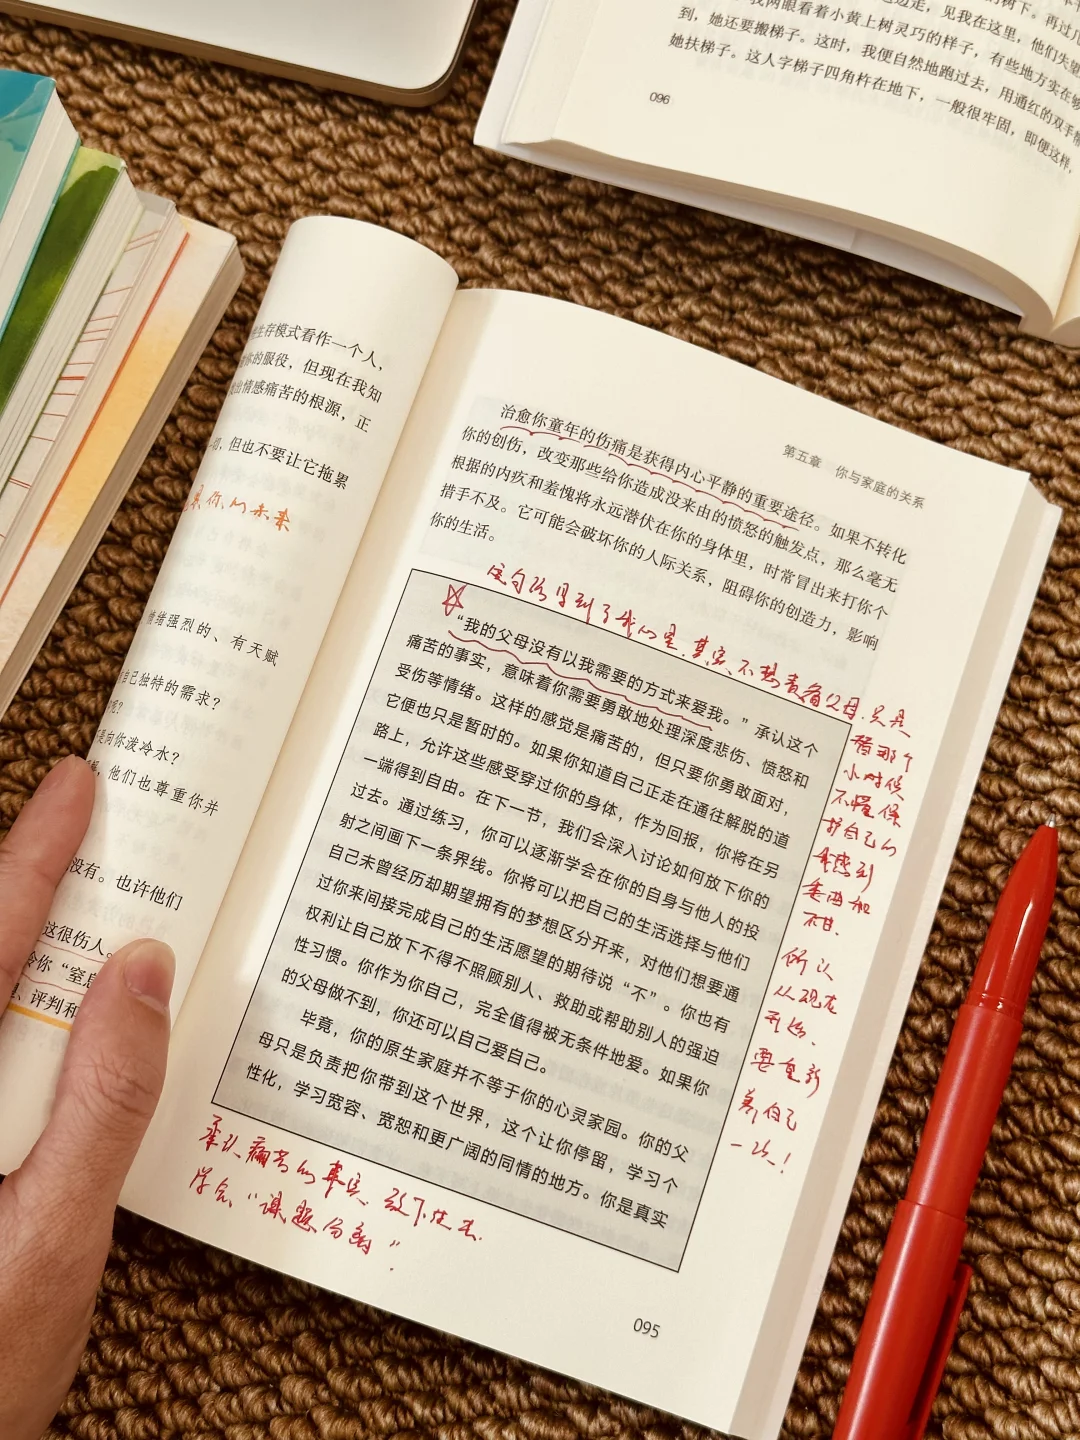 边走，见我在这里，他们失望
我两眼看着小黄上树灵巧的样子，有些地方实在够
到，她还要搬梯子。这时，我便自然地跑过去，用通红的双手帮
她扶梯子。这人字梯子四角杵在地下，一般很牢固，即便这样，
096
生存模式看作一个人，
你的服役，但现在我知
出情感痛苦的根源，正
切，但也不要让它拖累
你的未来
情绪强烈的、有天赋
自己独特的需求？
呢？
是向你泼冷水？
他们也尊重你并
没有。也许他们
这很伤人。
令你“窒息
评判和
第五章 你与家庭的关系
治愈你童年的伤痛是获得内心平静的重要途径。如果不转化
你的创伤，改变那些给你造成没来由的愤怒的触发点，那么毫无
根据的内疚和羞愧将永远潜伏在你的身体里，时常冒出来打你个
措手不及。它可能会破坏你的人际关系，阻碍你的创造力，影响
你的生活。
这句治愈到了我的是，其实，不想责备父母，只是
替那个
小时候
不懂保
护自己的
感到
委屈和
不甘．
所以
从现在
开始．
要重新
养自己
一次！
“我的父母没有以我需要的方式来爱我。”承认这个
痛苦的事实，意味着你需要勇敢地处理深度悲伤、愤怒和
受伤等情绪。这样的感觉是痛苦的，但只要你勇敢面对，
它便也只是暂时的。如果你知道自己正走在通往解脱的道
路上，允许这些感受穿过你的身体，作为回报，你将在另
一端得到自由。在下一节，我们会深入讨论如何放下你的
过去。通过练习，你可以逐渐学会在你的自身与他人的投
射之间画下一条界线。你将可以把自己的生活选择与他们
自己未曾经历却期望拥有的梦想区分开来，对他们想要通
过你来间接完成自己的生活愿望的期待说“不”。你也有
权利让自己放下不得不照顾别人、救助或帮助别人的强迫
性习惯。你作为你自己，完全值得被无条件地爱。如果你
的父母做不到，你还可以自己爱自己。
毕竟，你的原生家庭并不等于你的心灵家园。你的父
母只是负责把你带到这个世界，这个让你停留，学习个
性化，学习宽容、宽恕和更广阔的同情的地方。你是真实
承认痛苦的事实，放下过去．
学会“课题分离”．
095